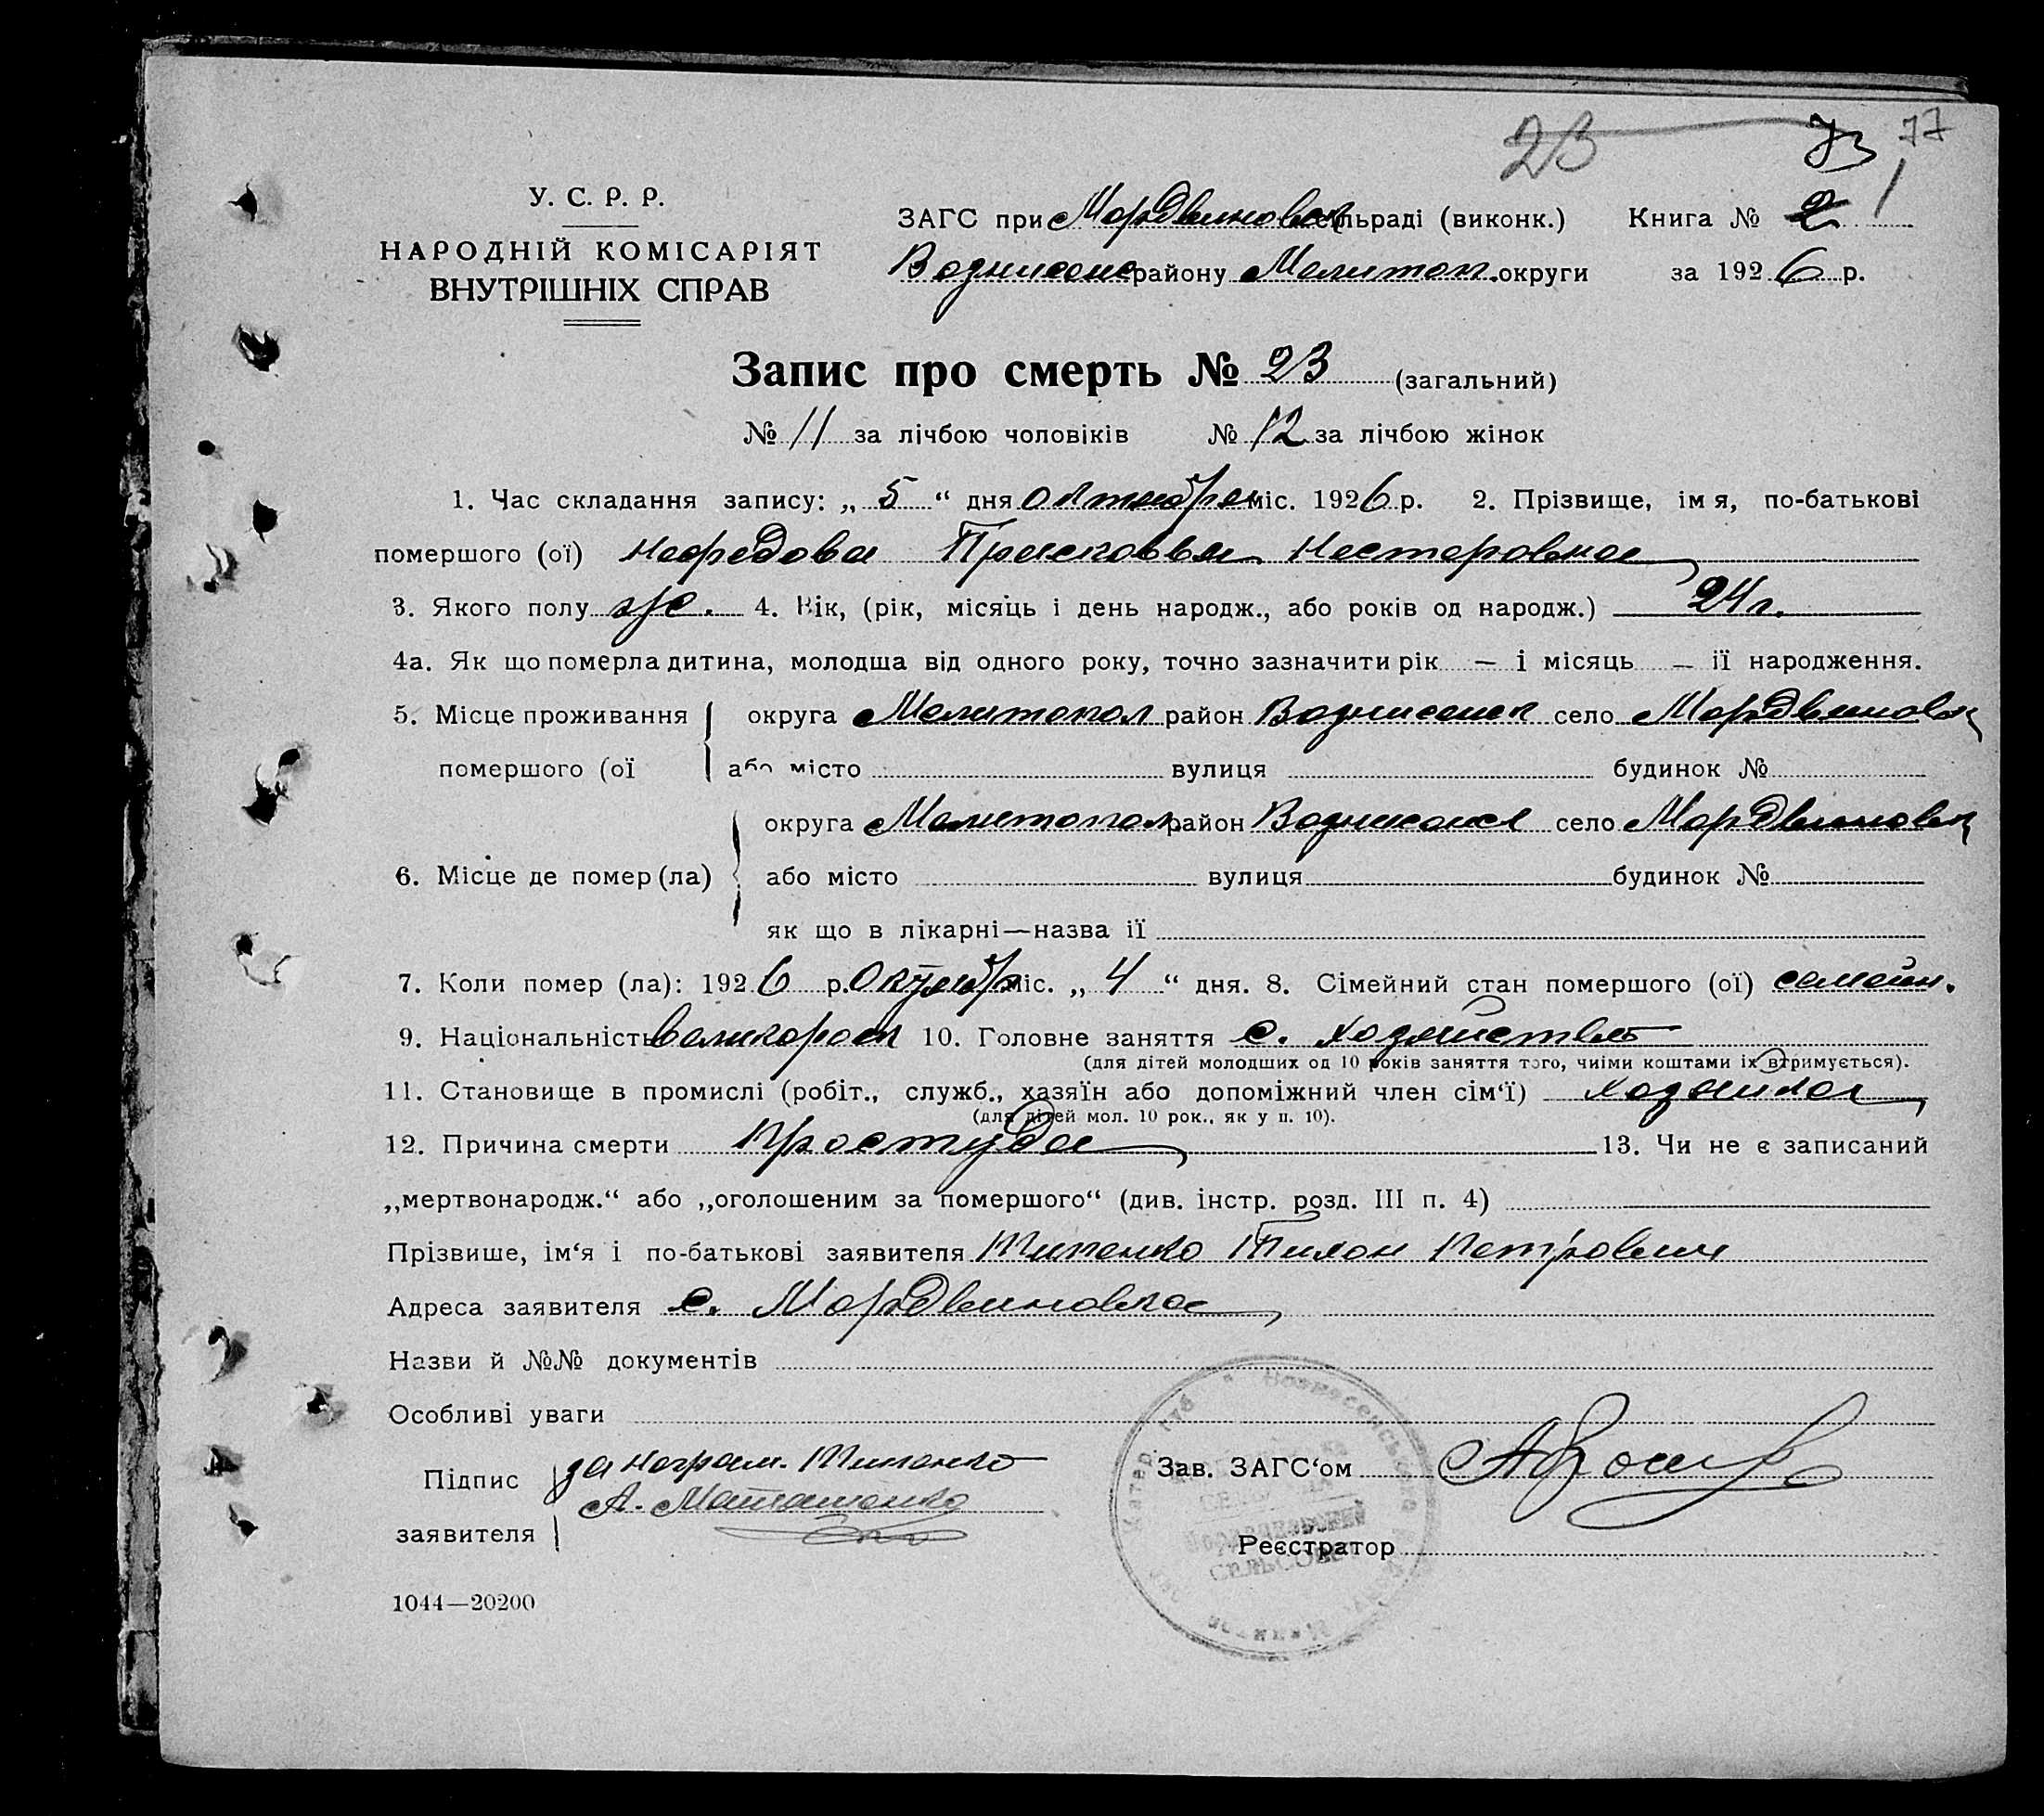 23 73 77
У. С. Р. Р.
НАРОДНІЙ КОМІСАРІЯТ
ВНУТРІШНІХ СПРАВ
ЗАГС при Мордвиновск сільраді (виконк.) Книга № 2 1
Вознисенс району Мелитоп. округи за 1926 р.
Запис про смерть № 23 (загальний)
№ 11 за лічбою чоловіків № 12 за лічбою жінок
1. Час складання запису: „ 5 “ дня октября міс. 1926 р. 2. Прізвище, імя, по-батькові
помершого (ої) Нефедова Прасковья Нестеровна
3. Якого полу ж. 4. Вік, (рік, місяць і день народж., або років од народж.) 24 г.
4а. Як що померла дитина, молодша від одного року, точно зазначити рік — і місяць — її народження.
5. Місце проживання округа Мелитопол район Вознисенск село Мордвиновк
помершого (ої або місто вулиця будинок №
округа Мелитопол район Вознисенск село Мордвиновк
6. Місце де помер (ла) або місто вулиця будинок №
як що в лікарні—назва її
7. Коли помер (ла): 1926 р. Октябр міс. „ 4 “ дня. 8. Сімейний стан помершого (ої) семейн.
9. Національність великоросс 10. Головне заняття с. хозяйство
(для дітей молодших од 10 років заняття того, чиїми коштами їх втримується).
11. Становище в промислі (робіт., служб., хазяїн або допоміжний член сім‘ї) хозяика
(для дітей мол. 10 рок., як у п. 10).
12. Причина смерти Простуда 13. Чи не є записаний
„мертвонародж.“ або „оголошеним за помершого“ (див. інстр. розд. III п. 4)
Прізвише, ім‘я і по-батькові заявителя Типенко Тихон Петрович
Адреса заявителя с. Мордвиновка
Назви й №№ документів
Особливі уваги
Підпис за неграм. Типенко
А.
заявителя
Зав. ЗАГС‘ом
Реєстратор
СЕЛЬСОВЕТ
1044—20200